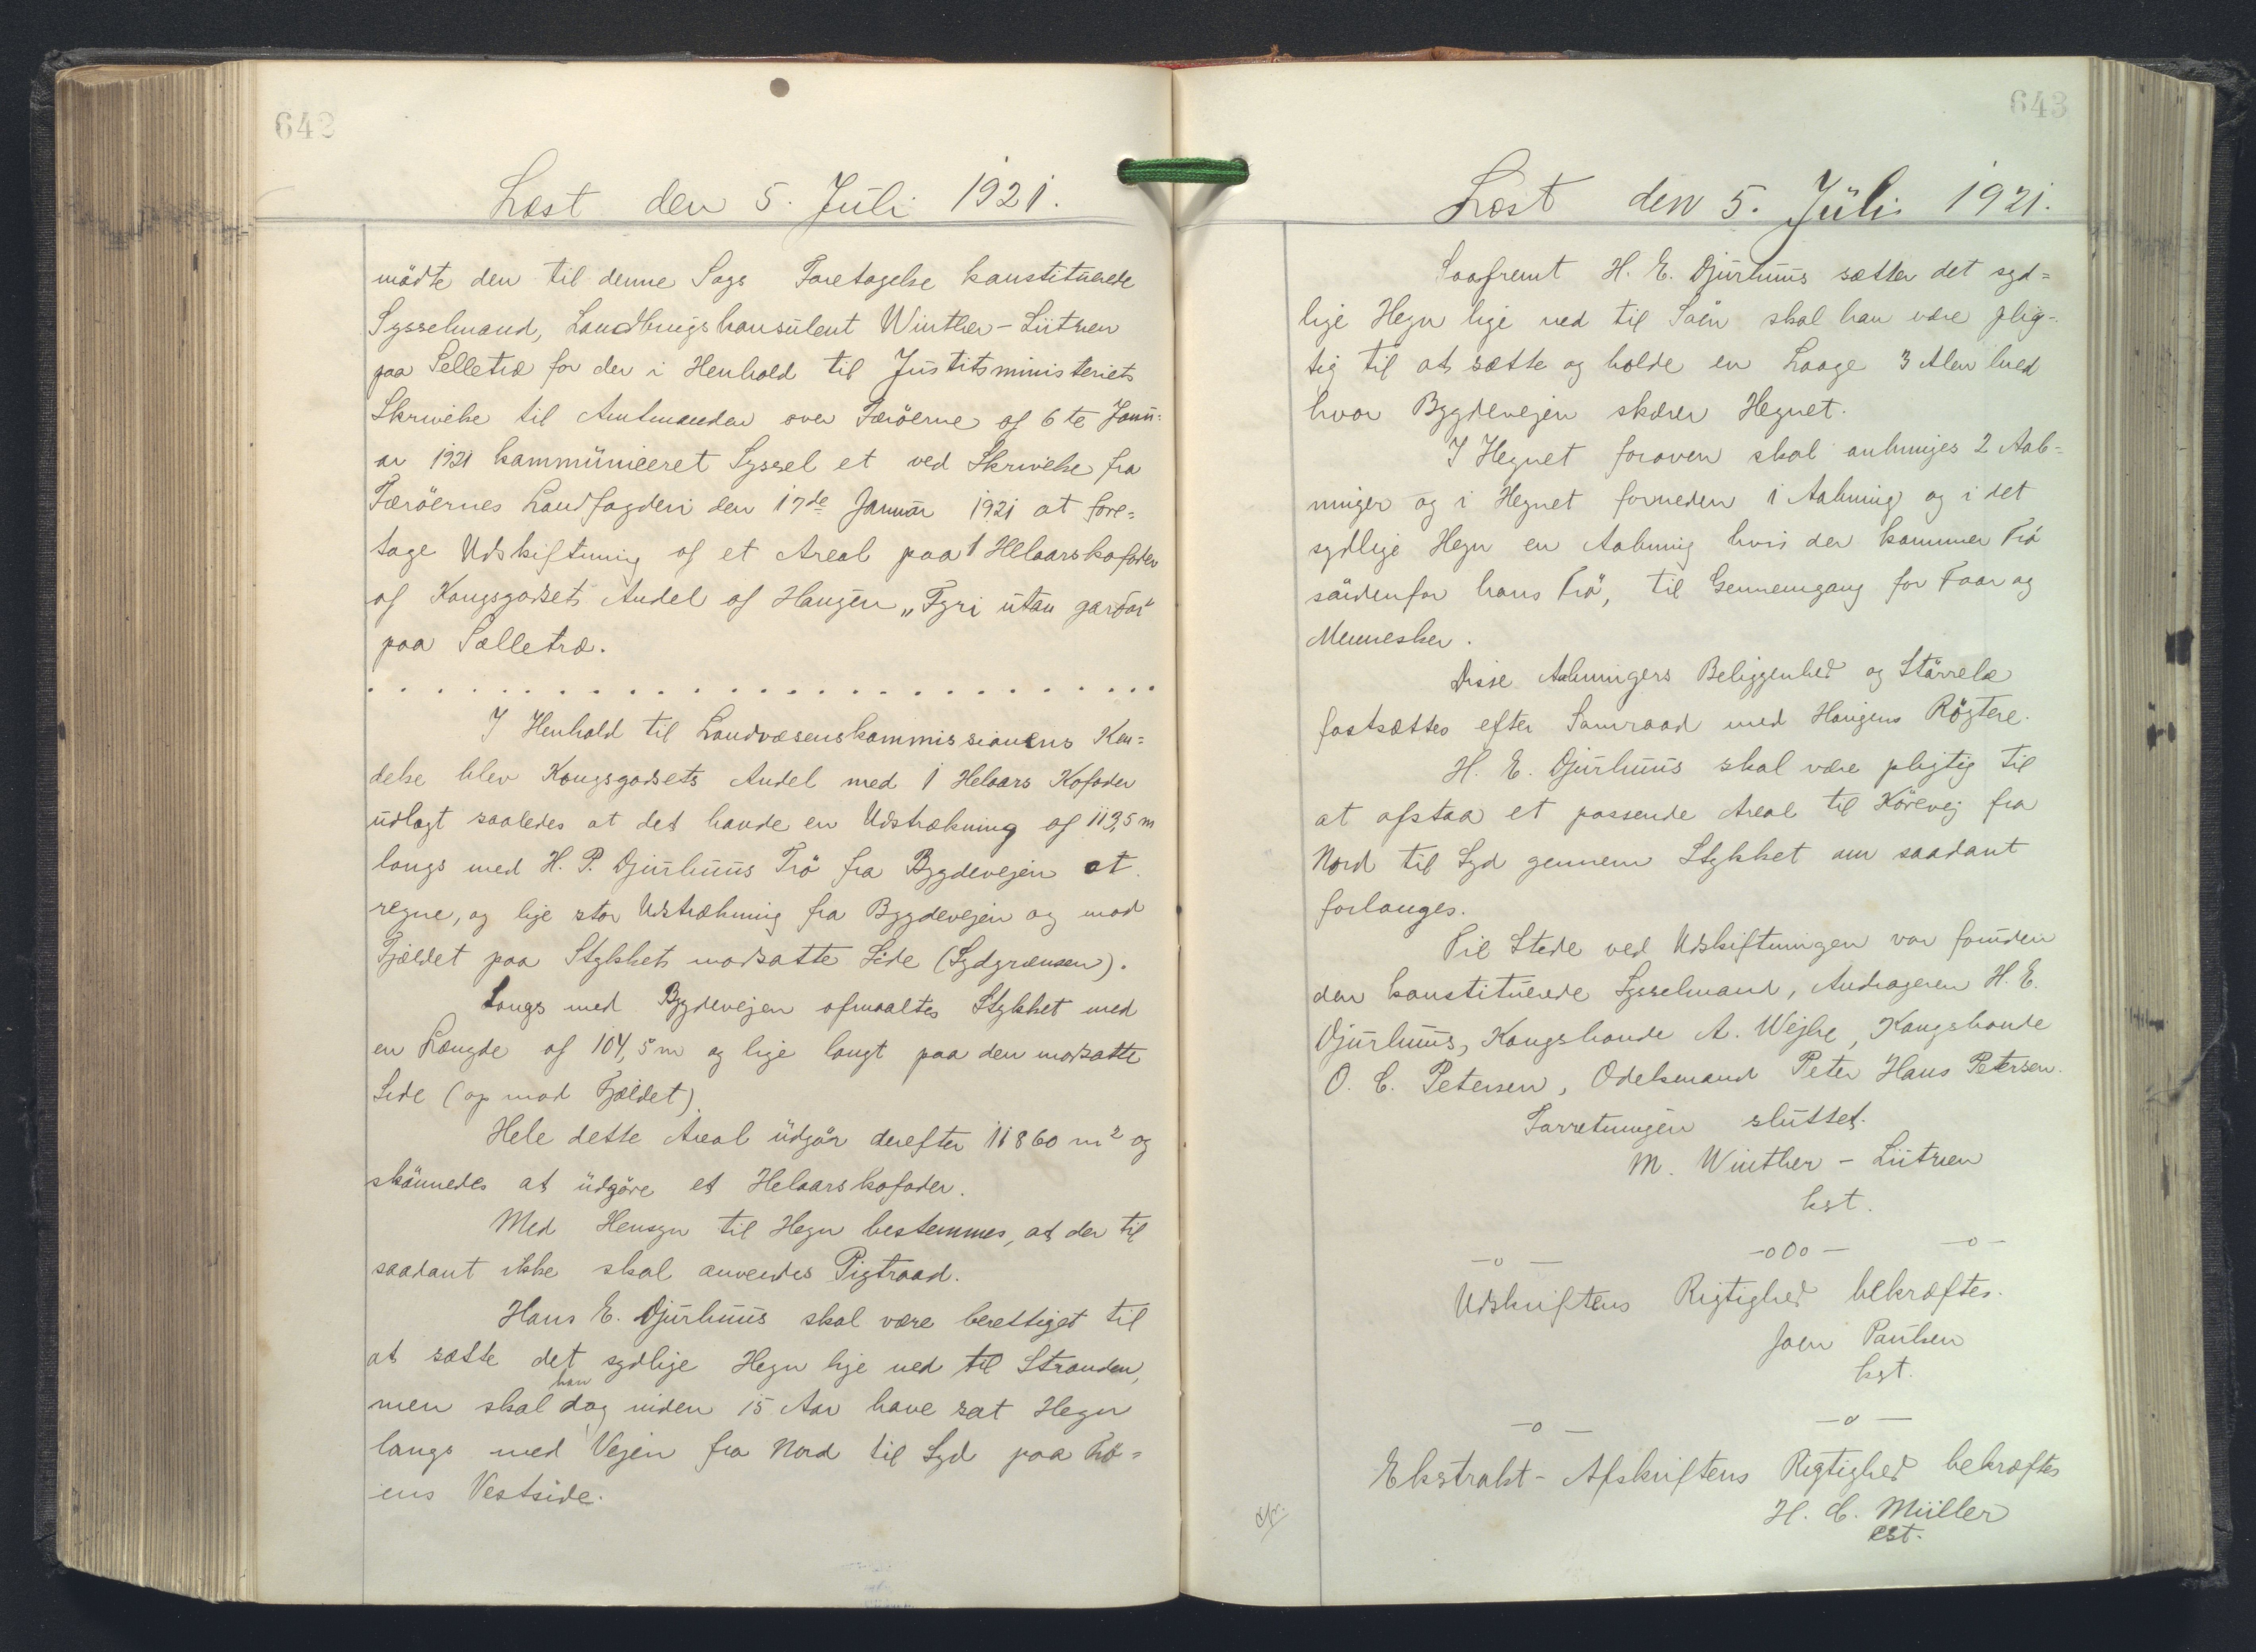 642
Læst den 5. Juli 1921.
mödte den til denne Sags Foretagelse konstituerede
Sysselmand, Landbrugskonsulent Winther-Lützen
paa Selletræ for der i Henhold til Justitsministeriets
Skrivelse til Amtmanden over Færöerne af 6te Janu=
ar 1921 kommuniceret Syssel et ved Skrivelse fra
Færöernes Landfogderi den 17de Januar 1921 at fore=
tage Udskiftning af et Areal paa 1 Helaarskofoder
af Kongsgodsets Andel af Haugen "Fyri utan garðar"
paa Selletræ.
I Henhold til Landvæsenskommissionens Ken=
delse blev Kongsgodsets Andel med 1 Helaars Kofoder
udlagt saaledes at det havde en Udstrækning af 113,5 m
langs med H. P. Djurhuus Trö fra Bygdevejen at
regne, og lige stor Udstrækning fra Bygdevejen og mod
Fjældet paa Stykkets modsatte Side (Sydgrænsen).
Langs med Bygdevejen afmaaltes Stykket med
en Længde af 104,5 m og lige langt paa den modsatte
Side (op mod Fjældet).
Hele dette Areal udgör derefter 11860 m² og
skönnedes at udgöre et Helaarskofoder.
Med Hensyn til Hegn bestemmes, at der til
saadant ikke skal anvendes Pigtraad.
Hans E. Djurhuus skal være berettiget til
at sætte det sydlige Hegn lige ned til Stranden,
men skal han dog inden 15 Aar have sat Hegn
langs med Vejen fra Nord til Syd paa Trö=
ens Vestside.
643
Læst den 5. Juli 1921.
Saafremt H. E. Djurhuus sætter det syd=
lige Hegn lige ned til Söen skal han være plig=
tig til at sætte og holde en Laage 3 Alen bred
hvor Bygdevejen skærer Hegnet.
I Hegnet foroven skal anbringes 2 Aab=
ninger og i Hegnet forneden 1 Aabning og i det
sydlige Hegn en Aabning hvis der kommer Trö
söndenfor hans Trö, til Gennemgang for Faar og
Mennesker.
Disse Aabningers Beliggenhed og Störrelse
fastsættes efter Samraad med Haugens Rögtere.
H. E. Djurhuus skal være pligtig til
at afstaa et passende Areal til Körevej fra
Nord til Syd gennem Stykket om saadant
forlanges.
Til Stede ved Udskiftningen var foruden
den konstituerede Sysselmand, Andrageren H. E.
Djurhuus, Kongsbonde A. Wejhe, Kongsbonde
O. C. Petersen, Odelsmand Peter Hans Petersen.
Forretningen sluttet.
M. Winther-Lützen
kst.
—o— —oOo— —o—
Udskriftens Rigtighed bekræftes.
Joen Paulsen
kst.
—o— —o—
Ekstrakt-Afskriftens Rigtighed bekræftes
H. C. Müller
cst.